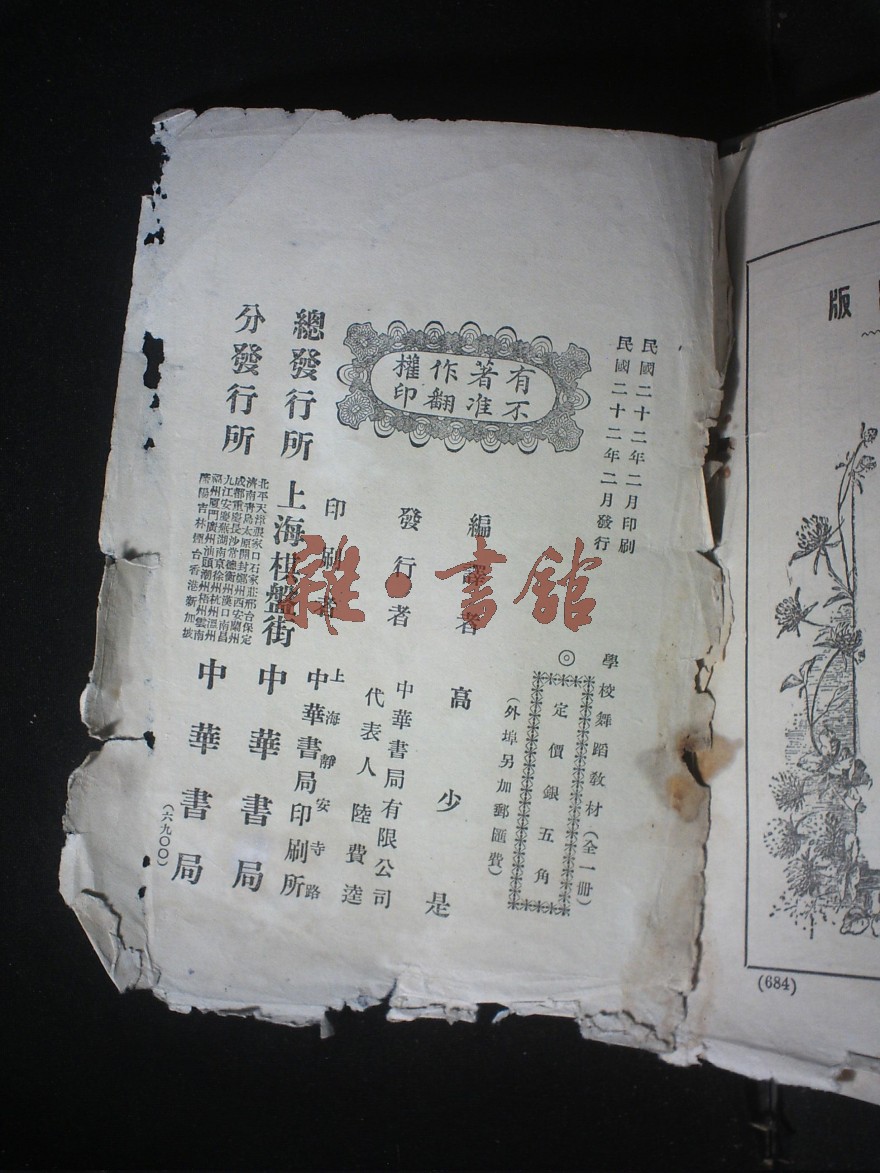 民國二十二年二月印刷
民國二十二年二月發行
學校舞蹈教材（全一冊）
◎定價銀五角
（外埠另加郵匯費）
有著作權
不准翻印
編譯者 高少是
發行者 中華書局有限公司
代表人 陸費逵
印刷者 上海靜安寺路
中華書局印刷所
總發行所 上海棋盤街 中華書局
分發行所
北平天津張家口石家莊邢台保定
濟南青島太原開封鄭州西安蘭州
成都重慶長沙常德衡州漢口南昌
九江安慶蕪湖南京徐州杭州溫州
福州廈門廣州汕頭潮州梧州雲南
瀋陽吉林煙台香港新加坡
中華書局
（六九〇〇）
雜·書館
版
(684)